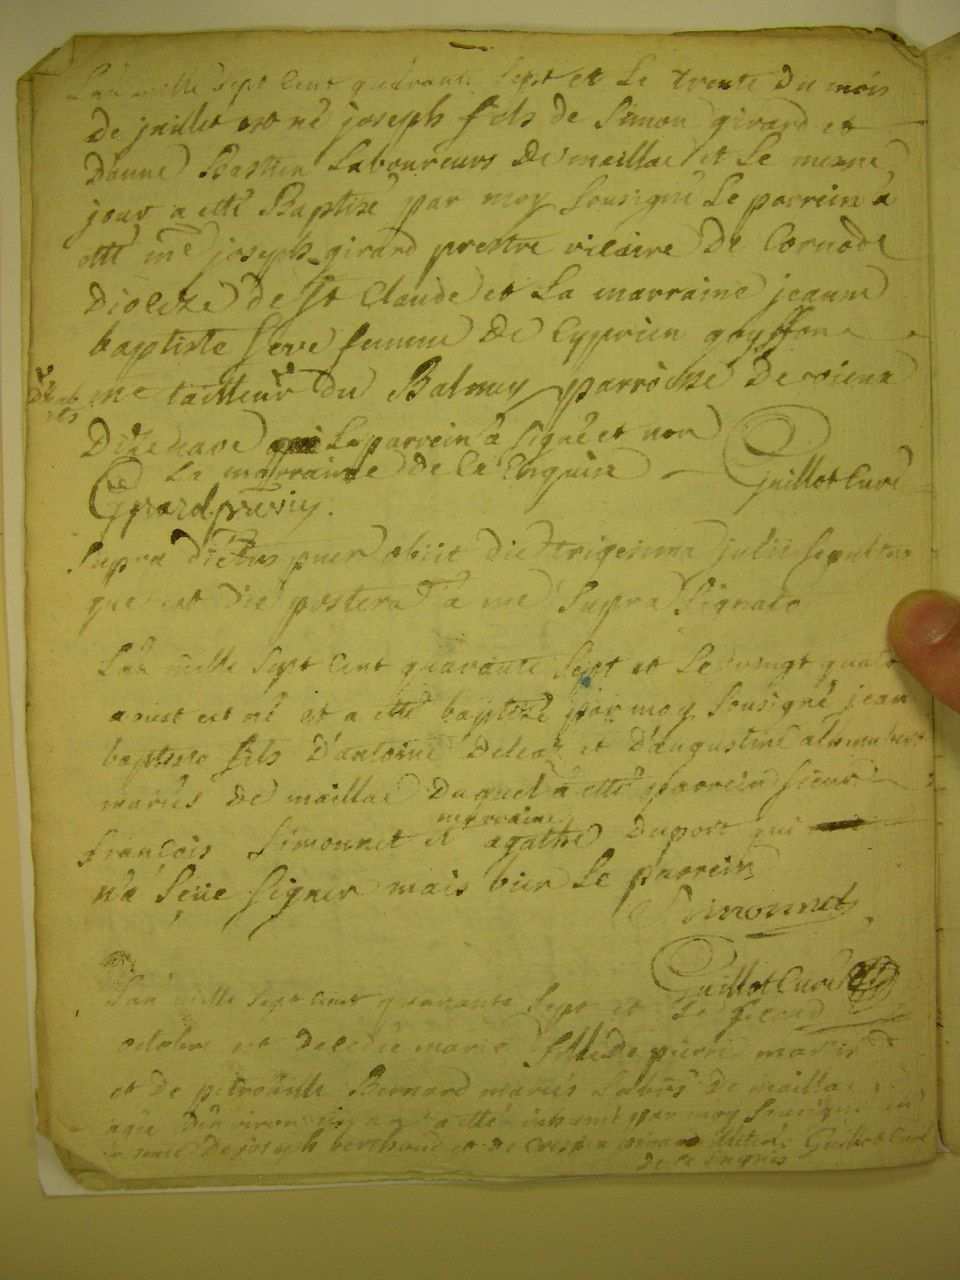 L'an mille sept cent quarante sept et le trente du mois
de juillet est né joseph fils de Simon girard et
d'anne laboureurs de maillac et le meme
jour a etté Baptisé par moy sousigné le parrein a
etté me joseph girard prestre vicaire de Cornode
Dioceze de St Claude et la marraine jeanne
baptiste seve femme de Cyprien
me tailleur du Balmay parroisse de vieux
Dizenave le parrein a signé et non
la marraine de ce enquise Guillot Curé
Girard
Supra dictus puer obiit die trigesima julii sepultus
que est die postera a me supra signato
L'an mille sept cent quarante sept et le vingt quatre
aoust est né et a etté baptisé par moy sousigné jean
baptiste fils d'antoine et d'augustine
mariés de maillac duquel a etté parrein sieur
marraine
francois Simonnet et agathe Duport qui
n'a seüe signer mais bien le parrein
Simonnet
Guillot Curé
L'an mille sept cent quarante sept et le second
octobre est decedée marie fille de pierre
et de petronille Bernard mariés de maillac
agée d'environ a etté inhumé par moy sousigné en
de joseph et de Guillot Curé
de ce enquis